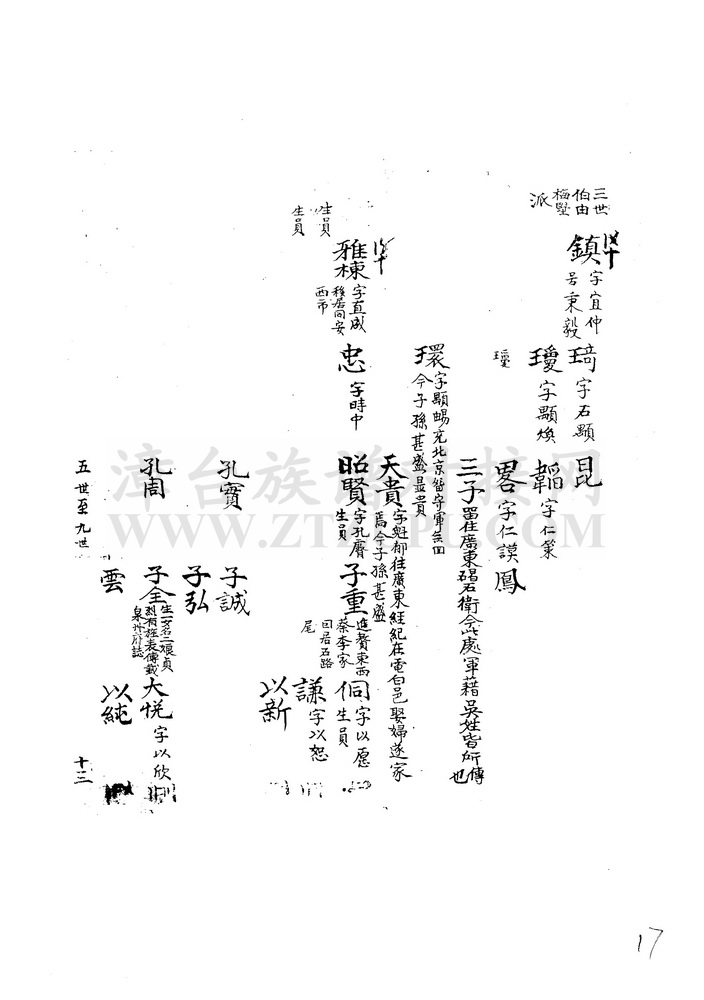 三世
伯由
梅墅
派
鎮 字宜仲
号秉毅
琦 字石顯
昆
瓊 字顯煥
韜 字仁策
畧 字仁謨
鳳
三子 畱住廣東碣石衛今此處軍藉吳姓皆所傳也
環 字顯賜充北京留守軍無回
今子孫甚盛最貴
天貴 字魁都住廣東経紀在電白邑娶婦遂家
焉今子孫甚盛
生員
生員
雅棟 字直成
移居同安
西市
忠 字時中
昭賢 字孔賡
生員
子重 進贅東西
蔡李家
回居石路
尾
侗 字以愿
生員
謙 字以恕
以新
孔賓
子誠
子弘
孔周
子全 生一女名二娘貞
烈有旌表傳載
泉州府誌
大悦 字以欣
雲
以純
五世至九世
十三
漳台族谱对接网
WWW.ZTZUPU.COM
17